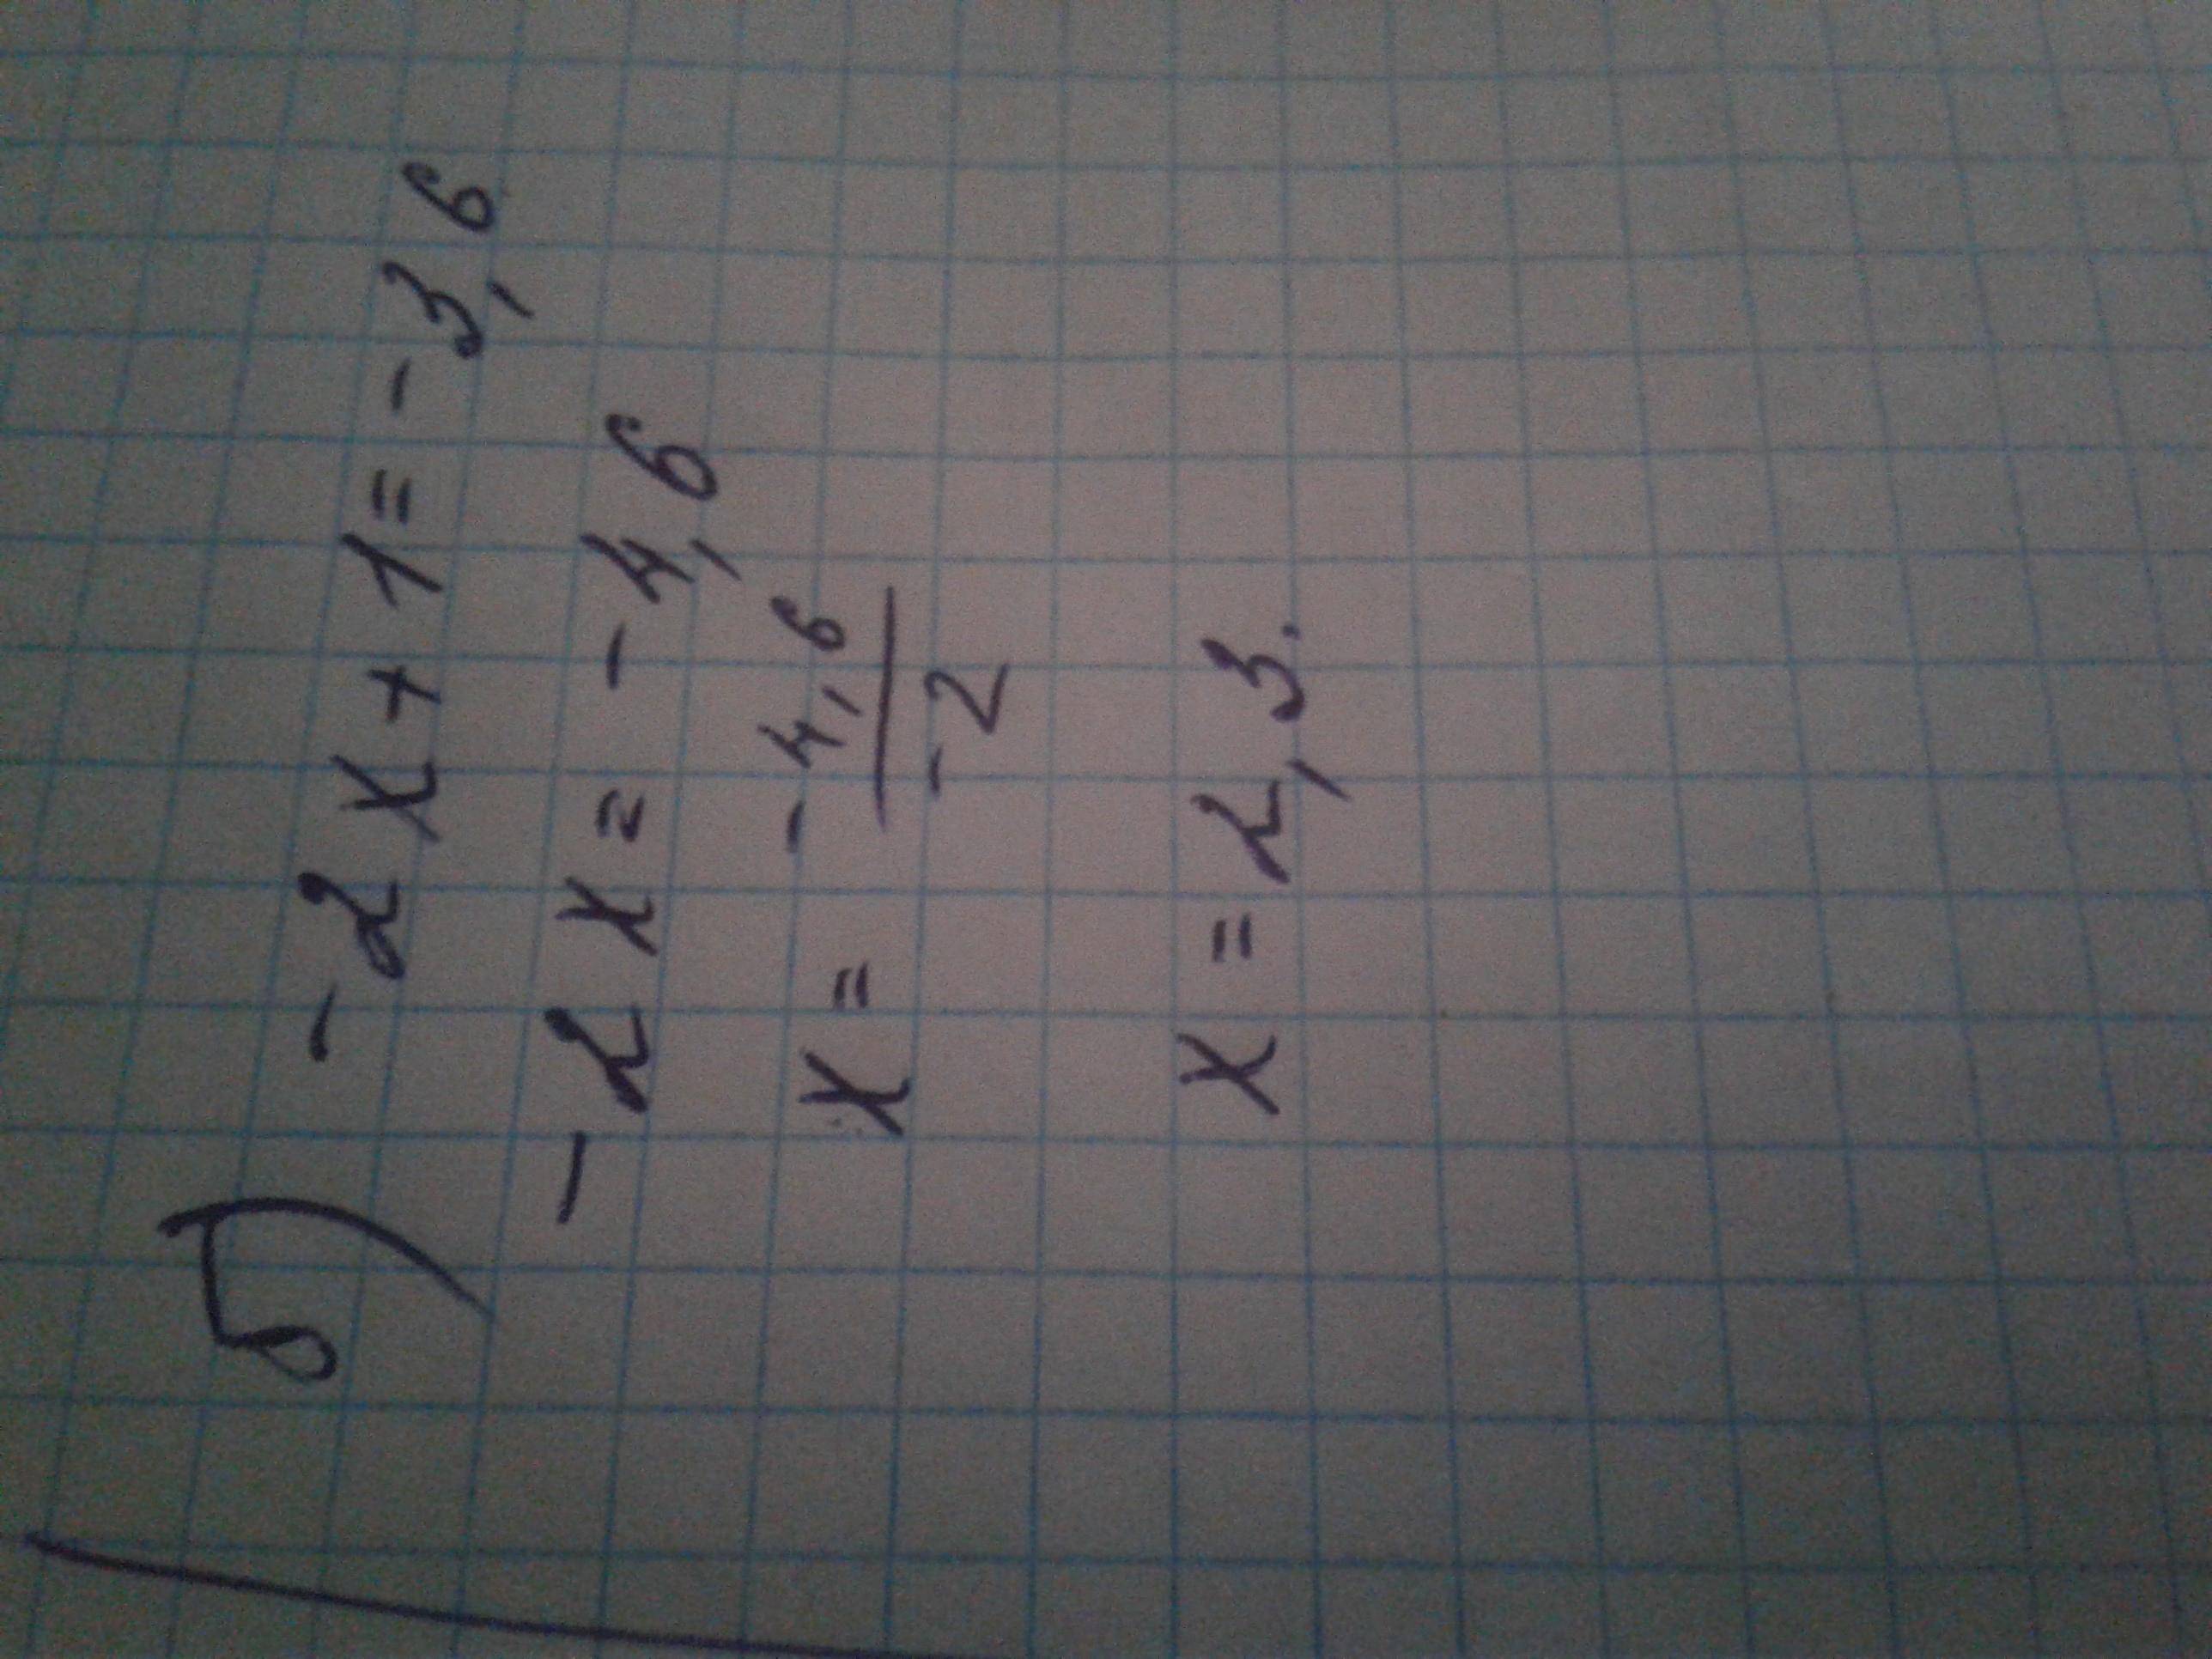 б) -2x+1=-3,6
-2x=-4,6
x= -4,6/-2
x=2,3.